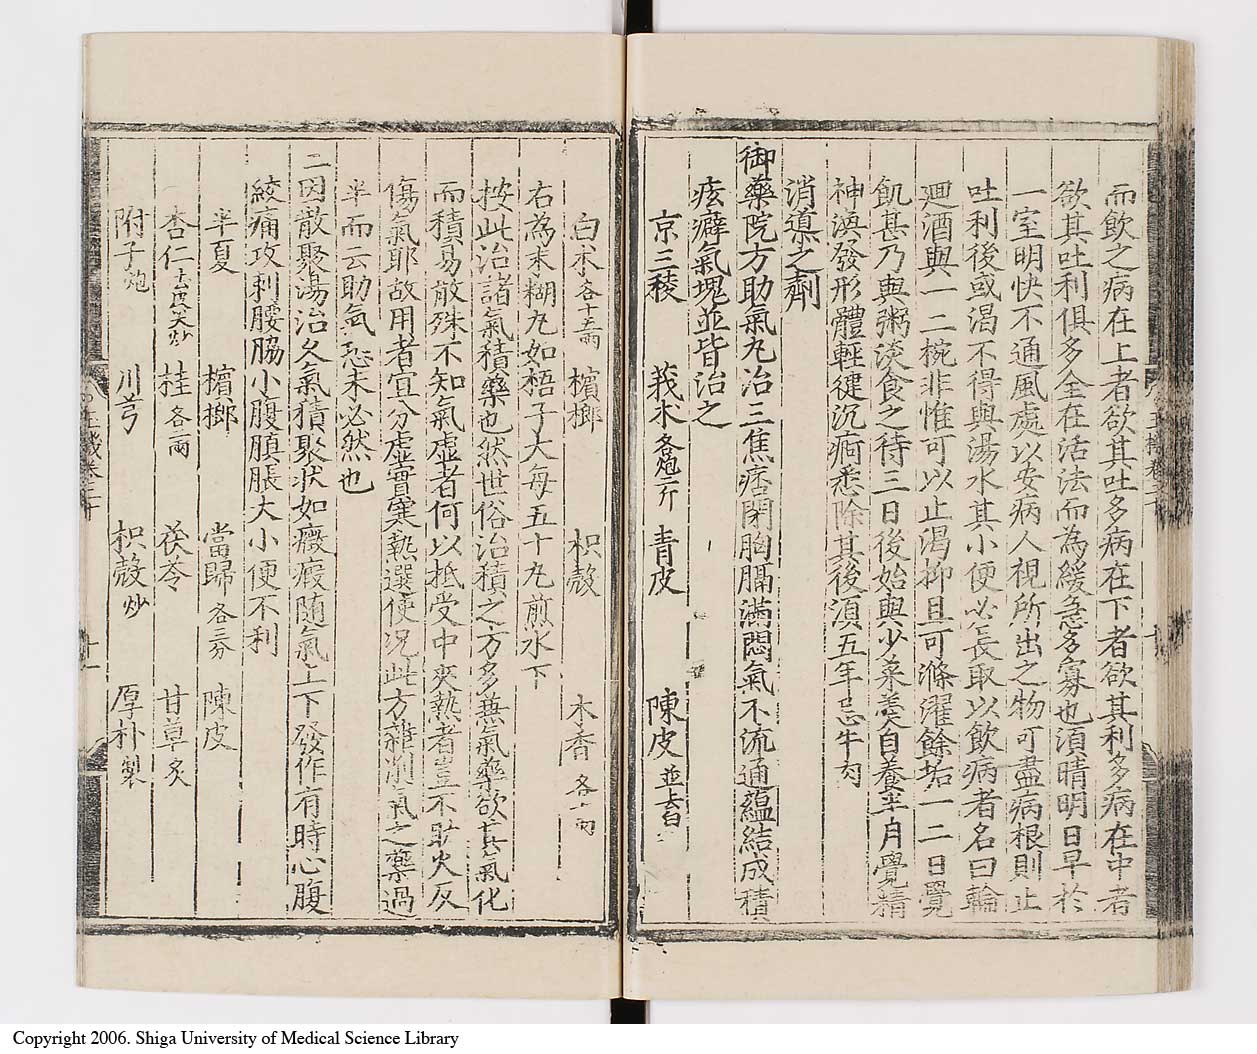 而飲之病在上者欲其吐多病在下者欲其利多病在中者
欲其吐利俱多全在活法而為緩急多寡也須晴明日早於
一室明快不通風處以安病人視所出之物可盡病根則止
吐利後或渴不得與湯水其小便必長取以飲病者名曰輪
廻酒與一二椀非惟可以止渴抑且可滌濯餘垢一二日覺
飢甚乃與粥淡食之待三日後始與少菜羮自養半月覺精
神渙發形體輕健沉痾悉除其後須五年忌牛肉
消導之劑
御藥院方助氣丸治三焦痞閉胸膈滿悶氣不流通蘊結成積
痃癖氣塊並皆治之
京三稜 莪朮各炮二斤 青皮 陳皮並去白
白朮各十五兩 檳榔 枳殼 木香各十兩
右為末糊丸如梧子大每五十丸煎水下
按此治諸氣積藥也然世俗治積之方多無氣藥欲其氣化
而積易散殊不知氣虛者何以抵受中夾熱者豈不耿火反
傷氣耶故用者宜分虛實寒熱選使况此方雜削氣之藥過
半而云助氣恐未必然也
二因散聚湯治久氣積聚状如癥瘕随氣上下發作有時心腹
絞痛攻刺腰脇小腹䐜脹大小便不利
半夏 檳榔 當歸各三分 陳皮
杏仁去皮尖炒 桂各二兩 茯苓 甘草炙
附子炮 川芎 枳殼炒 厚朴製
Copyright 2006. Shiga University of Medical Science Library